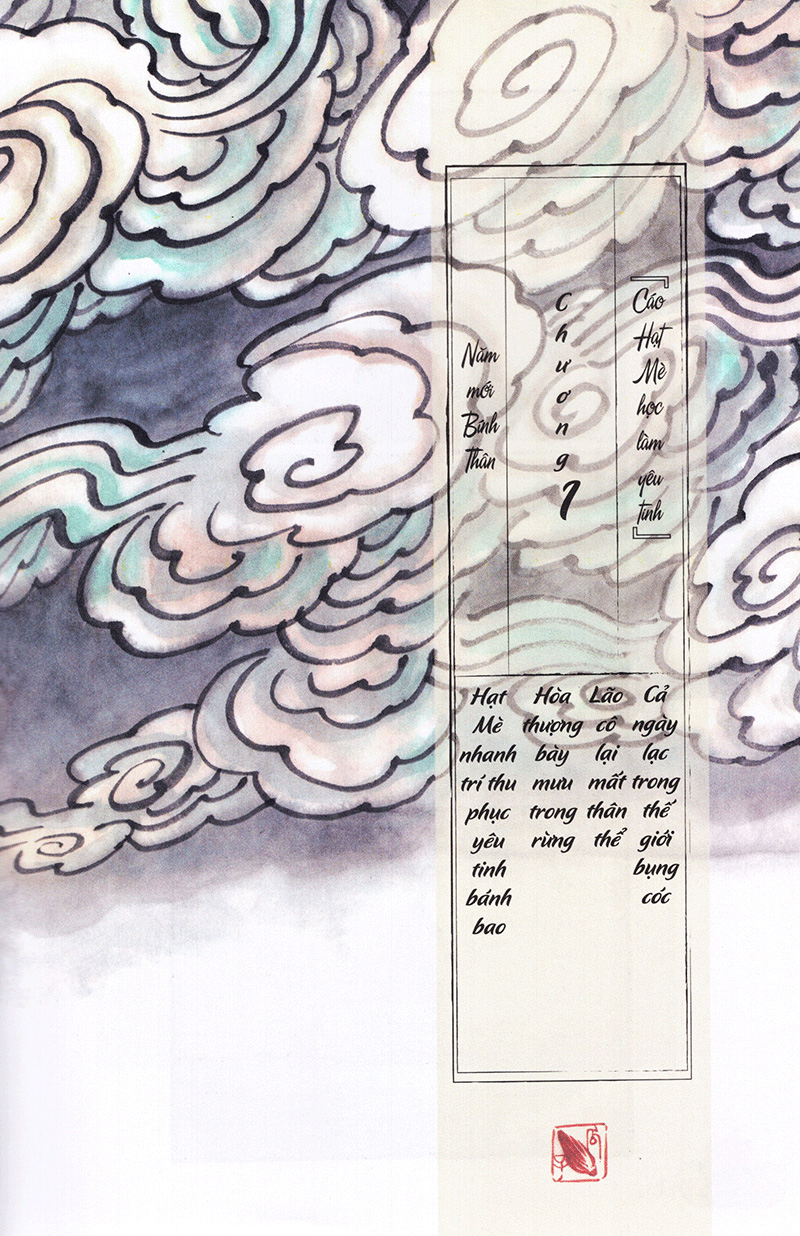 『Cáo Hạt Mè học làm yêu tinh』
Chương 1
Năm mới Bính Thân
Cả ngày lạc trong thế giới bụng cóc
Lão cô lại mất thân thể
Hòa thượng bày mưu trong rừng
Hạt Mè nhanh trí thu phục yêu tinh bánh bao